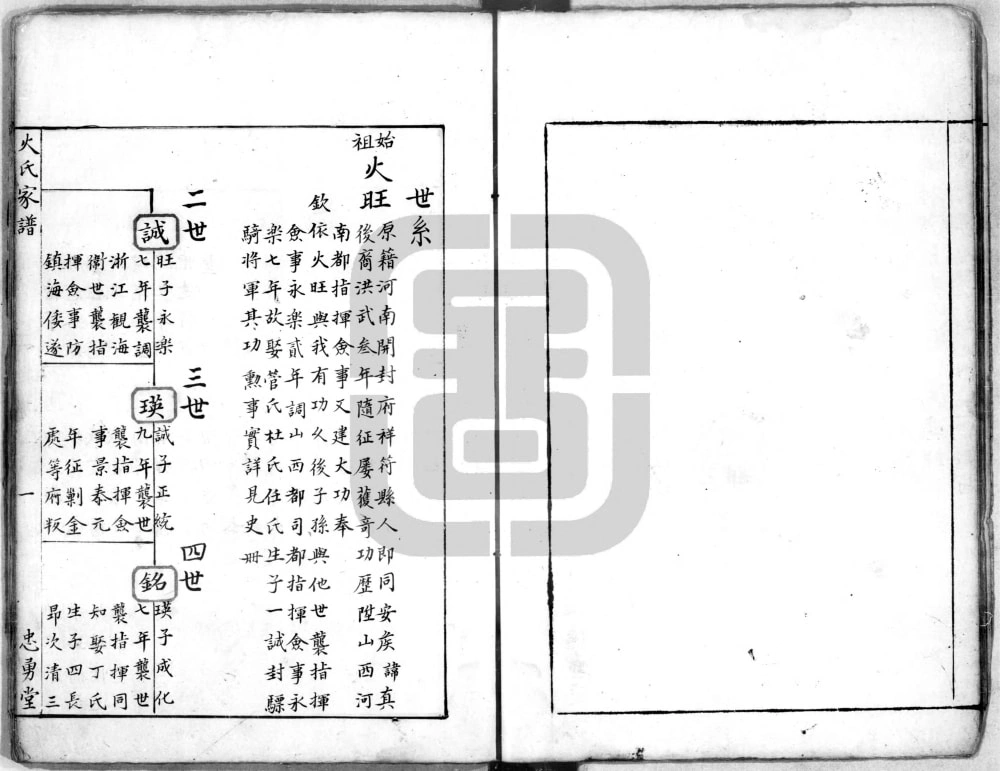 世系
始祖
火旺
原籍河南開封府祥符縣人即同安矦諱真
後裔洪武叁年隨征屢獲奇功歷陞山西河
南都指揮僉事又建大功奉
欽依火旺與我有功久後子孫與他世襲指揮
僉事永樂貳年調山西都司都指揮僉事永
樂七年故娶管氏杜氏任氏生子一誠封驃
騎將軍其功勲事實詳見史冊
二世
誠
旺子永樂
七年襲調
浙江觀海
衛世襲指
揮僉事防
鎮海倭遂
三世
瑛
誠子正統
九年襲世
襲指揮僉
事景泰元
年征剿金
處等府叛
四世
銘
瑛子成化
七年襲世
襲指揮同
知娶丁氏
生子四長
昻次清三
火氏家譜
一
忠勇堂